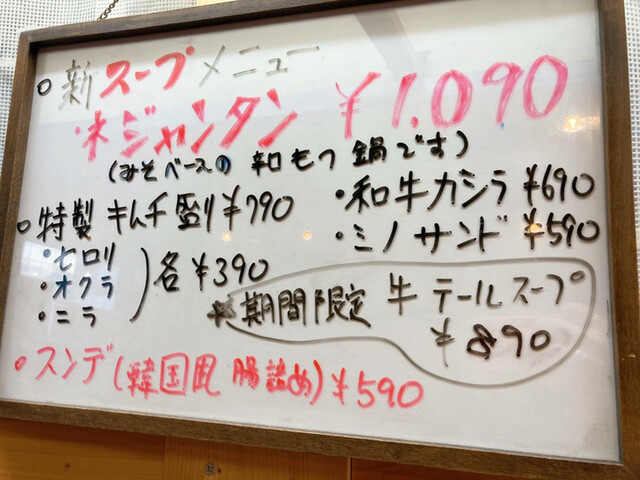 ○新スープメニュー
・ホジャンタン ¥1.090
(みそベースの辛口もつ鍋です)
○特製キムチ盛り¥790
・セロリ
・オクラ
・ニラ
)各¥390
・和牛カシラ¥690
・ミノサンド¥590
★期間限定 牛テールスープ
¥890
・スンデ(韓国風腸詰め)¥590